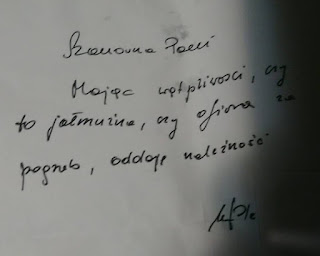 Szanowna Pani
Mając wątpliwości, czy
to jałmużna, czy ofiara za
pogrzeb, oddaję należność